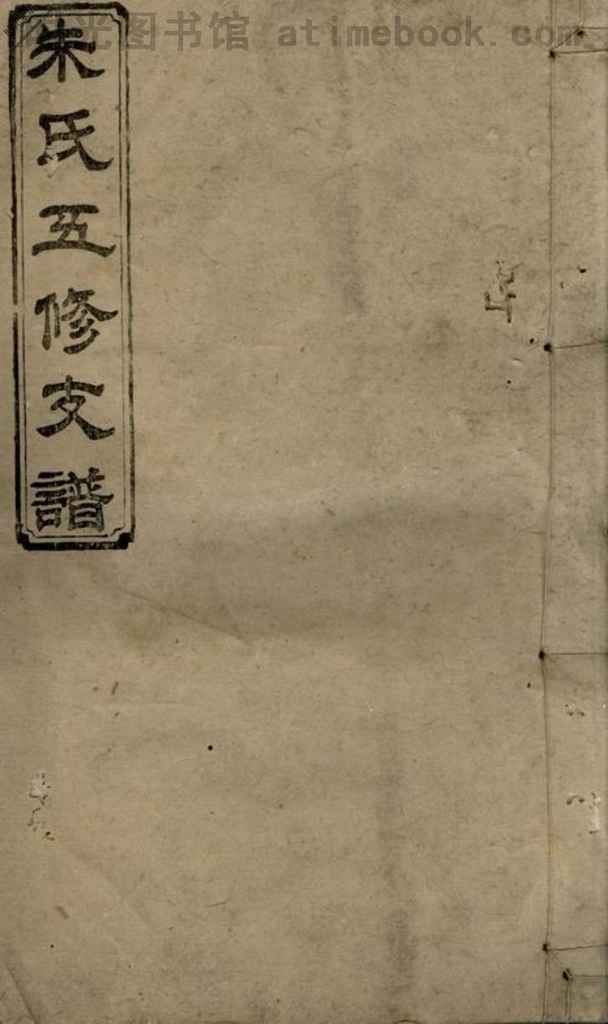 光图书馆 atimebook.com
朱氏五修支譜